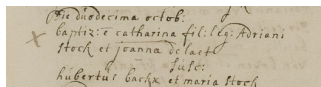 Die duodecima octob:
baptiz: e catharina fil: leg: Adriani
Stock et joanna de laet
susc:
hubertus backx et maria Stock